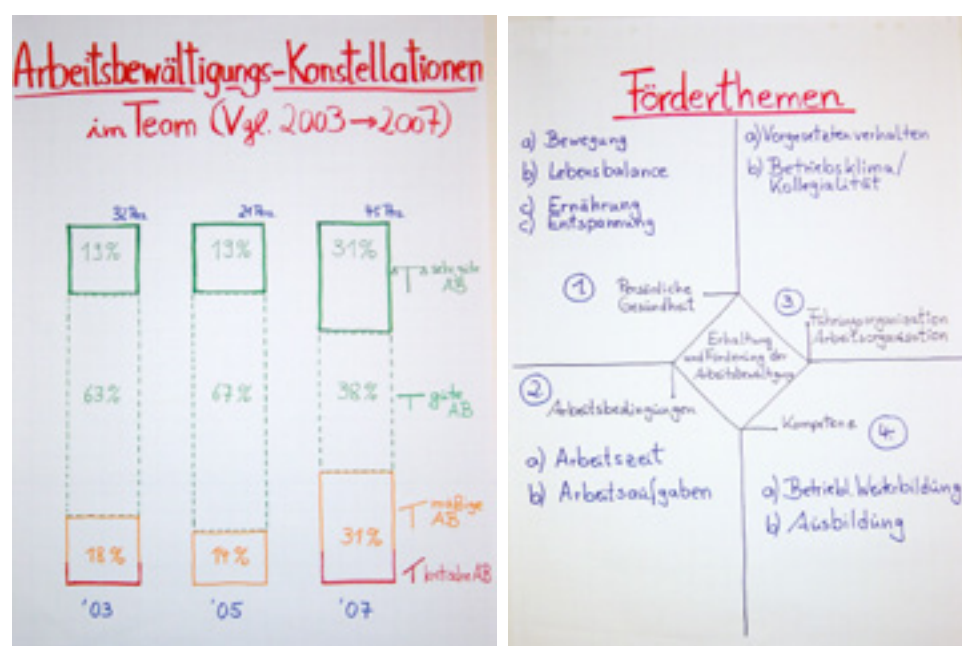 Arbeitsbewältigungs-Konstellationen
im Team (Vgl. 2003→2007)
19% 19% 31%
sehr gute
AB
63% 67% 38%
gute
AB
mäßige
AB
18% 14% 31%
kritische AB
'03 '05 '07
Förderthemen
a) Bewegung
b) Lebensbalance
c) Ernährung
c) Entspannung
a) Vorgesetztenverhalten
b) Betriebsklima/
Kollegialität
1 Persönliche
Gesundheit
3
Führungsorganisation
Arbeitsorganisation
Erhaltung
und Förderung der
Arbeitsbewältigung
2
Arbeitsbedingungen
a) Arbeitszeit
b) Arbeitsaufgaben
Kompetenz 4.
a) Betriebl. Weiterbildung
b) Ausbildung